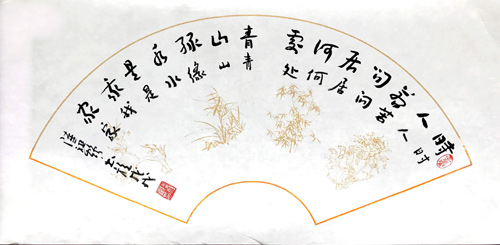 時人若问居何處青山緑水是我家
时人若问居何处青山緑水是我家